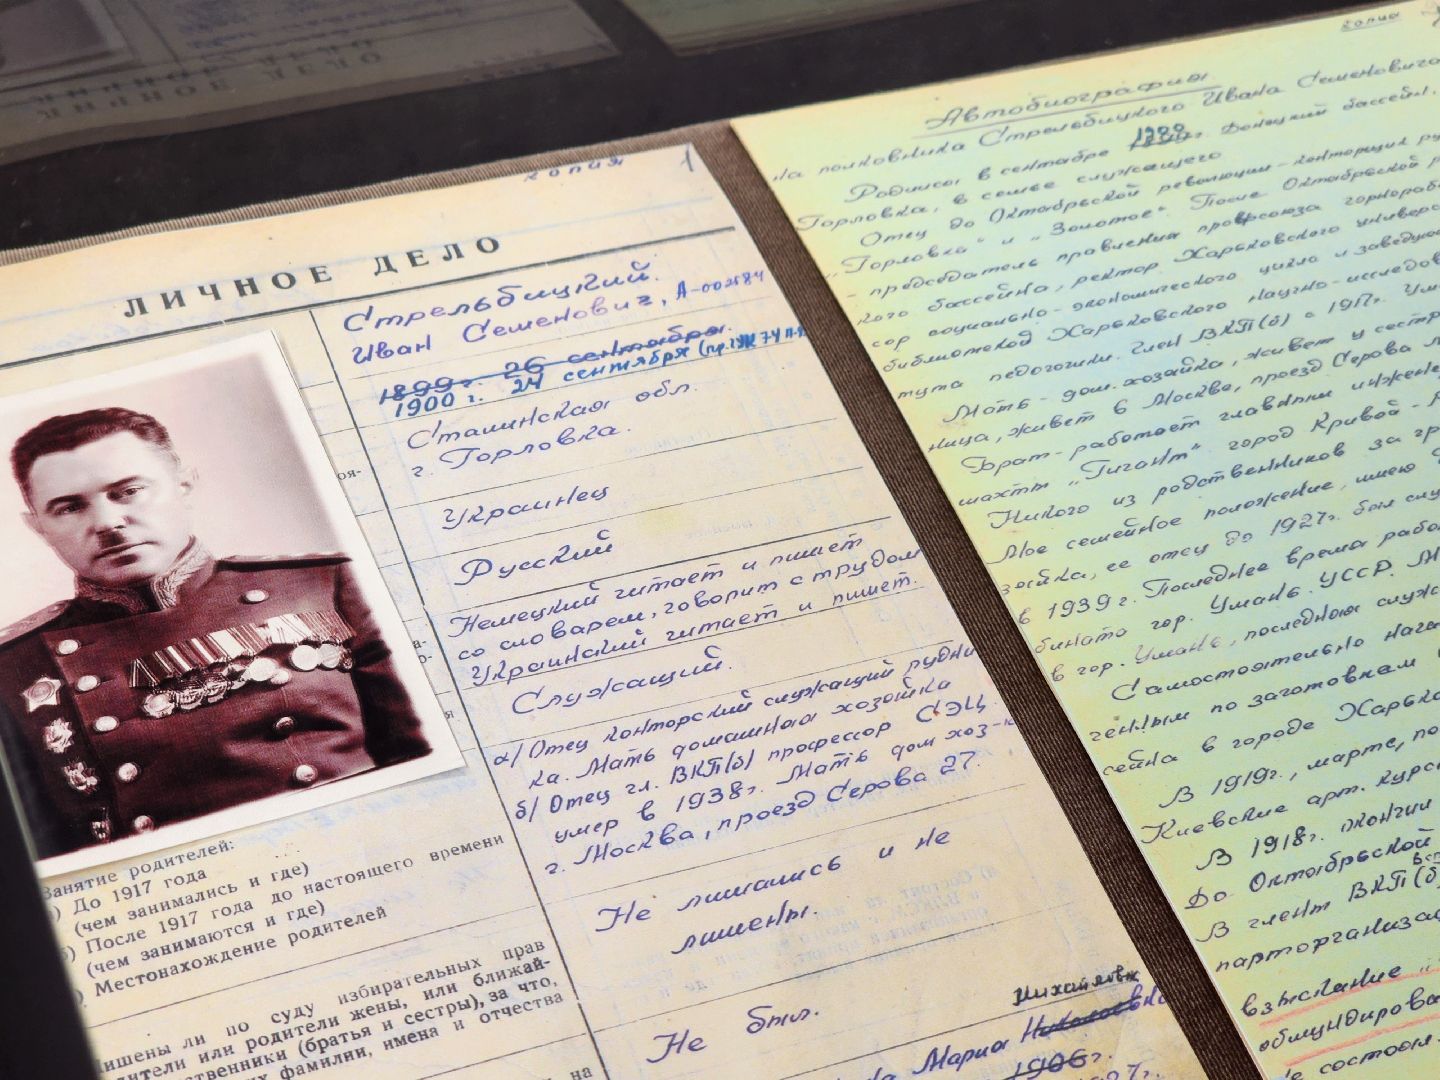 копия 1
ЛИЧНОЕ ДЕЛО
Стрельбицкий
Иван Семенович, А-002584
1899 г. 26 сентября.
1900 г. 24 сентября (пр. ГУК
Сталинская обл.
г. Горловка.
Украинец
Русский
Немецкий читает и пишет
со словарем, говорит с трудом
Украинский читает и пишет.
Служащий.
а/ Отец конторский служащий рудни
ка. Мать домашняя хозяйка
б/ Отец чл. ВКП(б) профессор СЭЦ
умер в 1938 г. Мать дом хоз-
г. Москва, проезд Серова 27.
Не лишались и не
лишены.
Не был.
Михайловна
Мария Николаевна
1906 г.
Занятие родителей:
До 1917 года
(чем занимались и где)
После 1917 года до настоящего времени
(чем занимаются и где)
Местонахождение родителей
лишены ли по суду избирательных прав
родители или родители жены, или ближай-
родственники (братья и сестры), за что,
фамилии, имена и отчества
на
копия
Автобиография
на полковника Стрельбицкого Ивана Семеновича
Родился в сентябре 1899 г. Донецкий бассейн,
Горловка, в семье служащего
Отец до Октябрьской революции - конторщик
„Горловка" и „Золотое" После Октябрьской
- председатель правления профсоюза горнораб
кого бассейна, ректор Харьковского универс
сор социально-экономического цикла и заведую
библиотекой Харьковского научно-исследов
тута педагогики. Член ВКП(б) с 1917 г.
Мать - дом. хозяйка, живет у сестр
ница, живет в Москве, проезд Серова
Брат - работает главным инжене
шахты „Гигант" город Кривой -
Никого из родственников за гр
Мое семейное положение, имею
зяйка, ее отец до 1927 г. был слу
в 1939 г. Последнее время рабо
бината гор. Умань. УССР.
в гор. Умань, последняя служ
Самостоятельно нача
генным по заготовкам
сейна в городе Харьк
В 1919 г., марте, по
Киевские арт. курс
В 1918 г. окончи
До Октябрьской
В члены ВКП(б)
парторганизац
взыскание
обмундирова
не состоял.